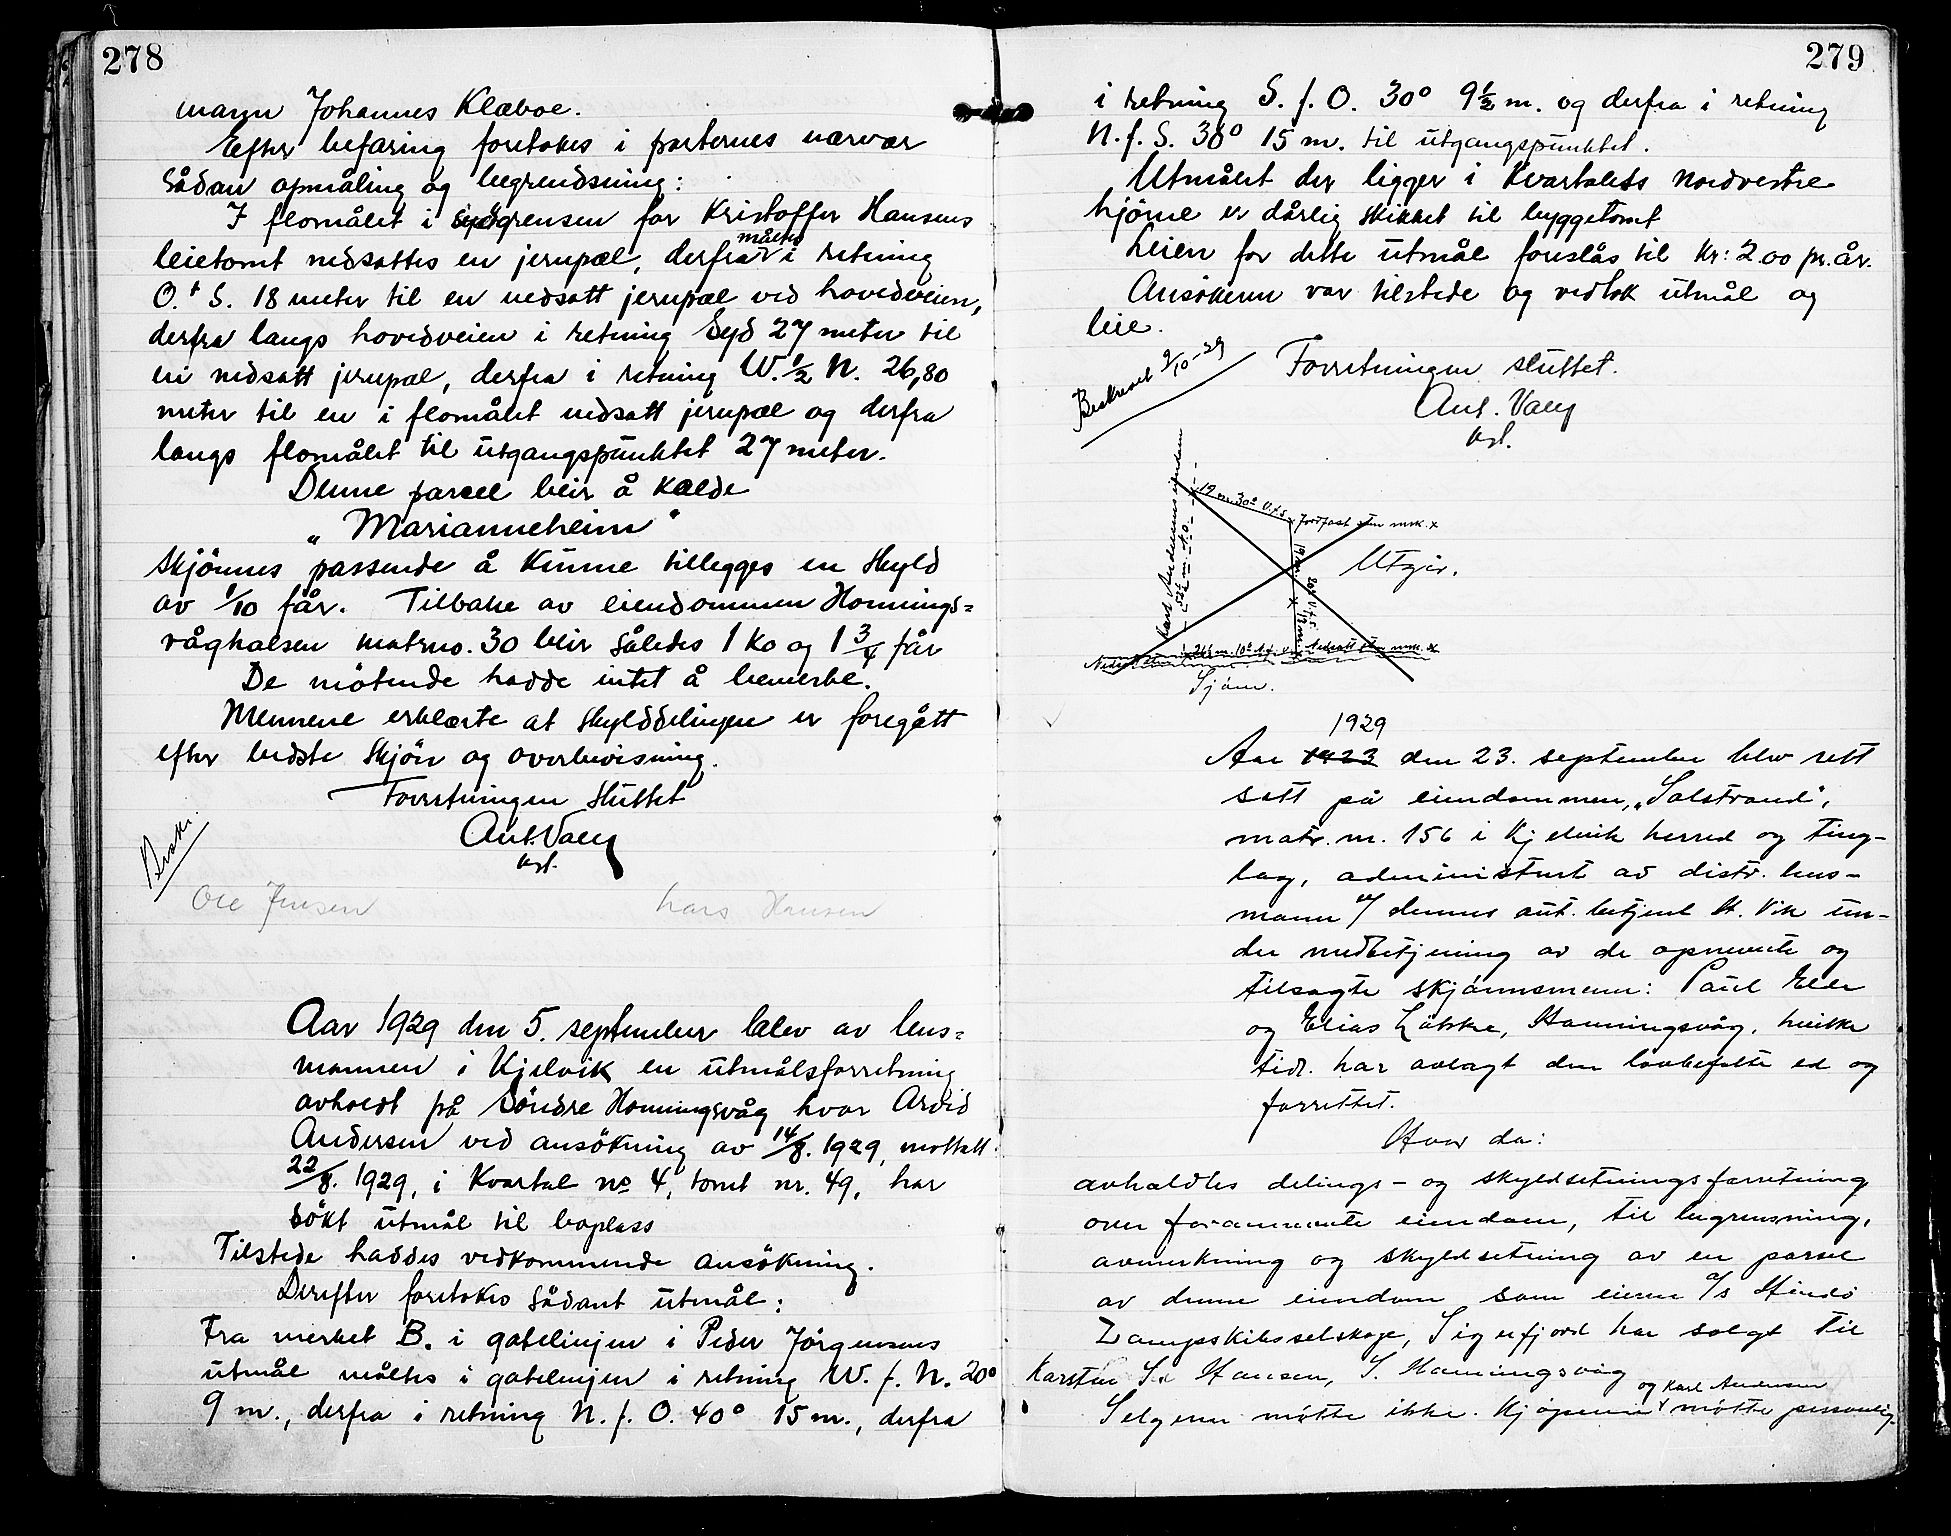 278
mann Johannes Klæboe.
Efter befaring foretokes i parternes nærvær
sådan opmåling og begrendsning:
I flomålet i sydgrensen for Kristoffer Hansens
leietomt nedsattes en jernpæl, derfra måltes i retning
O. t S. 18 meter til en nedsatt jernpæl ved hovedveien,
derfra langs hovedveien i retning Syd 27 meter til
en nedsatt jernpæl, derfra i retning W. ½ N. 26,80
meter til en i flomålet nedsatt jernpæl og derfra
langs flomålet til utgangspunktet 27 meter.
Denne parcel blir å kalde
„Marianneheim"
Skjönnes passende å kunne tillegges en Skyld
av 1/10 får. Tilbake av eiendommen Honnings=
våghalsen matrno. 30 blir således 1 ko og 1 3/4 får
De mötende hadde intet å bemerke.
Mennene erklærte at skylddelingen er foregått
efter bedste skjön og overbevisning.
Forretningen sluttet
Ant. Valey
kst.
Beskr.
Ole Jensen Lars Hansen
Aar 1929 den 5. september blev av lens=
mannen i Kjelvik en utmålsforretning
avholdt på Söndre Honningsvåg hvor Arvid
Andersen ved ansökning av 14/8. 1929, mottatt
22/8. 1929, i Kvartal no 4, tomt nr. 49, har
sökt utmål til boplass
Tilstede haddes vedkommende ansökning.
Derefter foretokes sådant utmål:
Fra merket B. i gatelinjen i Peder Jörgensens
utmål måltes i gatelinjen i retning W. f. N. 20°
9 m., derfra i retning N. f. O. 40° 15 m., derfra
279
i retning S. f. O. 30° 9½ m. og derfra i retning
N. f. S. 30° 15 m. til utgangspunktet.
Utmålet der ligger i Kvartalets nordvestre
hjörne er dårlig skikket til byggetomt
Leien for dette utmål foreslås til kr: 2.00 pr. år.
Ansökeren var tilstede og vedtok utmål og
leie.
Beskrevet 9/10-29
Forretningen sluttet.
Ant. Valey
kst.
19 m. 30° V.t.S.
Jordfast sten mrk. x
Utgår.
Nedsatt sten mrk. x
Sjöen.
1929
Aar 1923 den 23. september blev rett
satt på eiendommen, „Solstrand",
matr. nr. 156 i Kjelvik herred og ting-
lag, administrert av distr. lens-
mann v/ dennes aut. betjent H. Vik un-
der medbetjening av de opnevnte og
tilsagte skjönnsmenn: Paul Eler
og Elias Løkke, Honningsvåg, hvilke
tidl. har avlagt den lovbefalte ed og
forrettet.
Hvor da:
avholdtes delings- og skyldsetningsforretning
over forannevnte eiendom, til begrensning,
avmerkning og skyldsetning av en parsel
av denne eiendom som eieren A/S Hindö
Dampskibsselskap, Sigerfjord har solgt til
Karsten Hansen, S. Honningsvåg
Selgeren møtte ikke. Kjøperen og Karl Andersen møtte personlig.